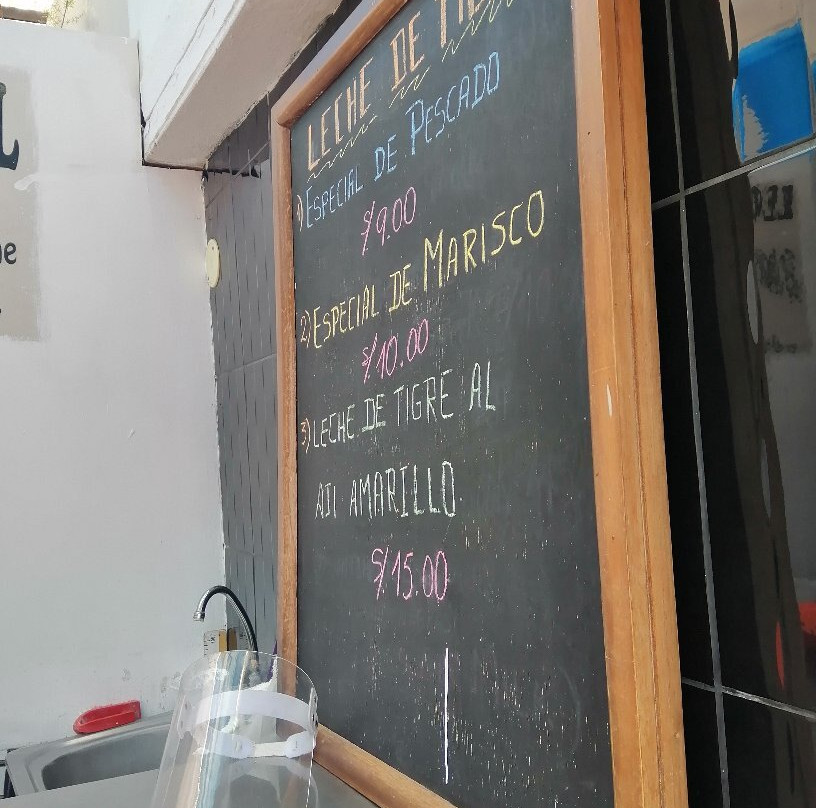 LECHE DE
1) ESPECIAL DE PESCADO
S/9.00
2) ESPECIAL DE MARISCO
S/10.00
3) LECHE DE TIGRE AL
AJI AMARILLO
S/15.00